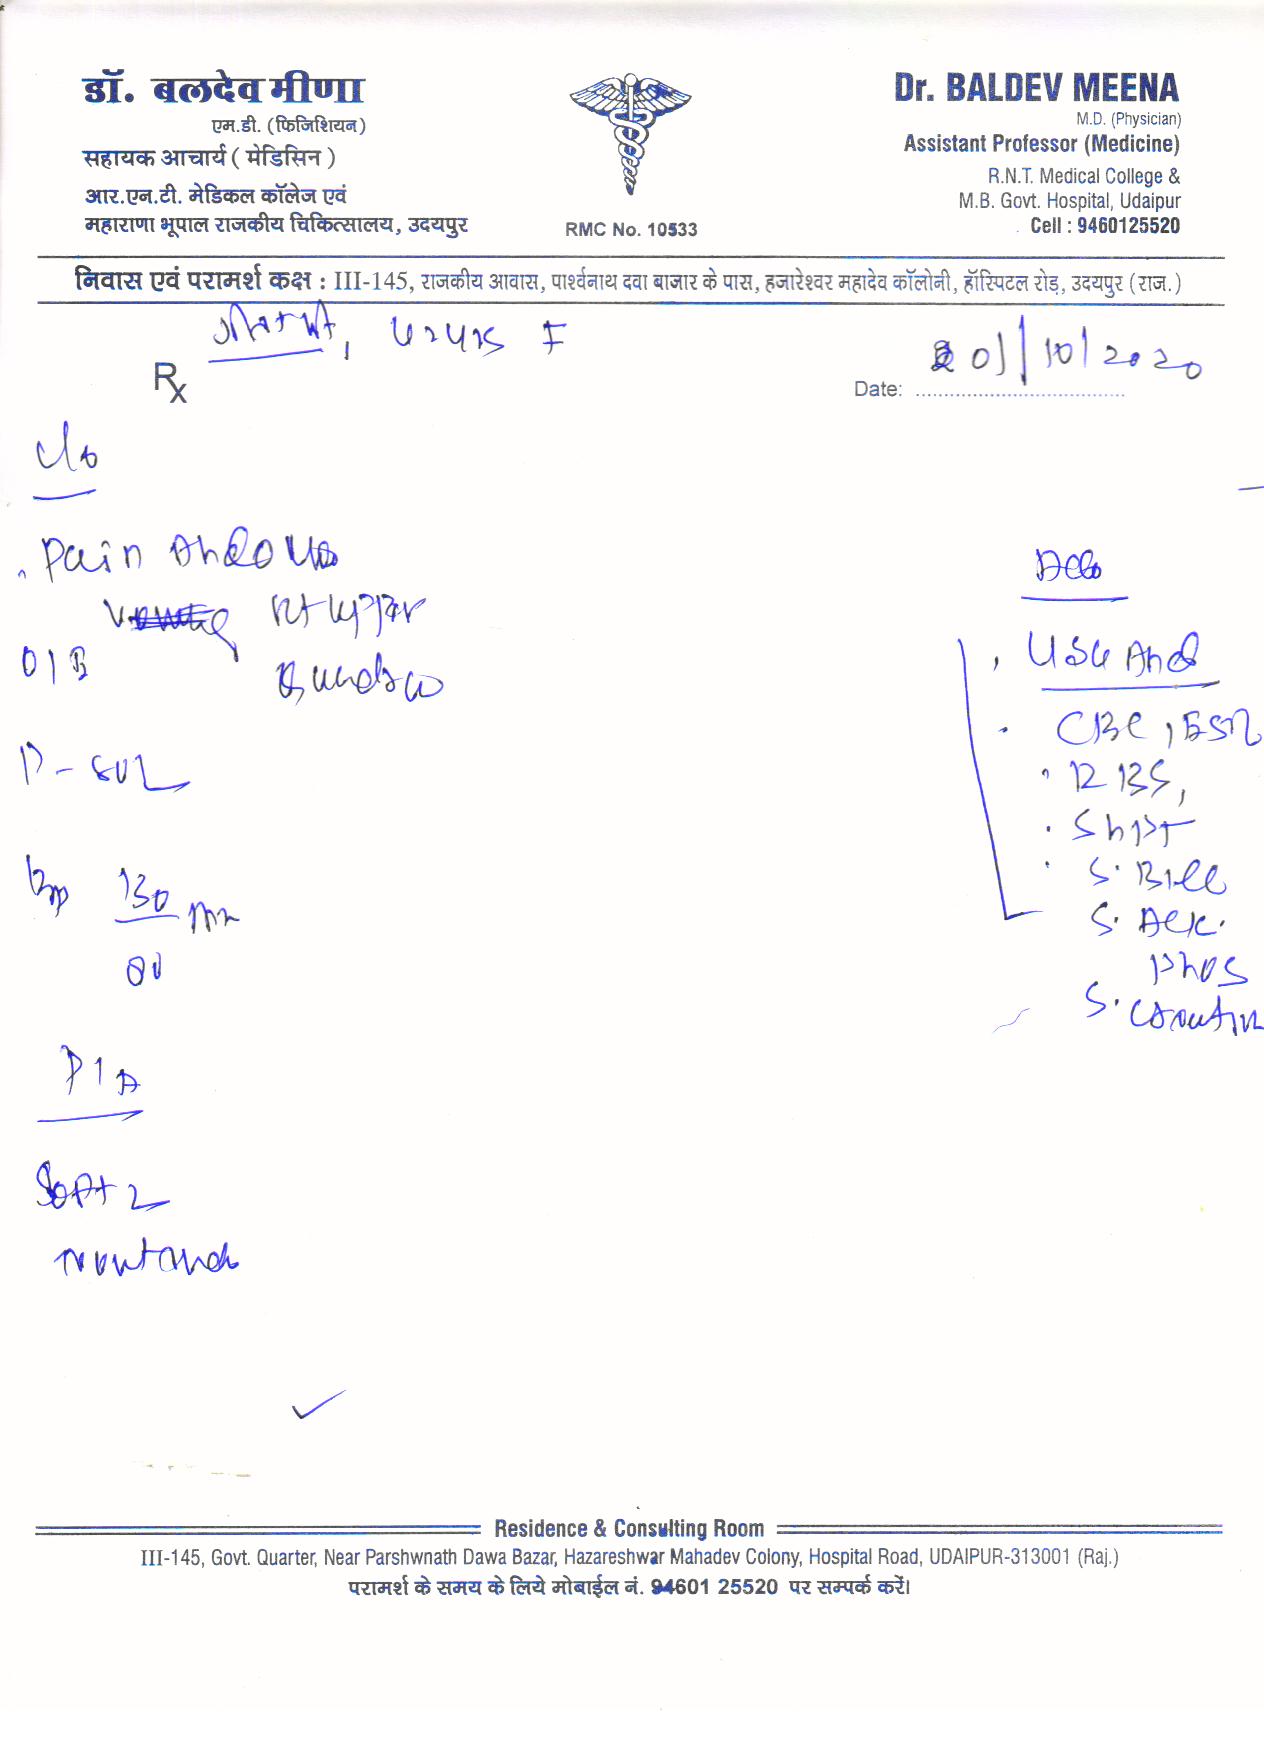 डॉ. बलदेव मीणा
एम.डी. (फिजिशियन)
सहायक आचार्य ( मेडिसिन )
आर.एन.टी. मेडिकल कॉलेज एवं
महाराणा भूपाल राजकीय चिकित्सालय, उदयपुर
RMC No. 10533
Dr. BALDEV MEENA
M.D. (Physician)
Assistant Professor (Medicine)
R.N.T. Medical College &
M.B. Govt. Hospital, Udaipur
Cell : 9460125520
निवास एवं परामर्श कक्ष : III-145, राजकीय आवास, पार्श्वनाथ दवा बाजार के पास, हजारेश्वर महादेव कॉलोनी, हॉस्पिटल रोड़, उदयपुर (राज.)
F
Rx
Date: 01/10/2020
C/o
Pain
Rt upper
O/E
BP 130 mm
80
P/A
Soft
USG Abd
CBC, ESR
RBS,
SGPT
S. Bill
S. Alk.
Phos
S.
Residence & Consulting Room
III-145, Govt. Quarter, Near Parshwnath Dawa Bazar, Hazareshwar Mahadev Colony, Hospital Road, UDAIPUR-313001 (Raj.)
परामर्श के समय के लिये मोबाईल नं. 94601 25520 पर सम्पर्क करें।